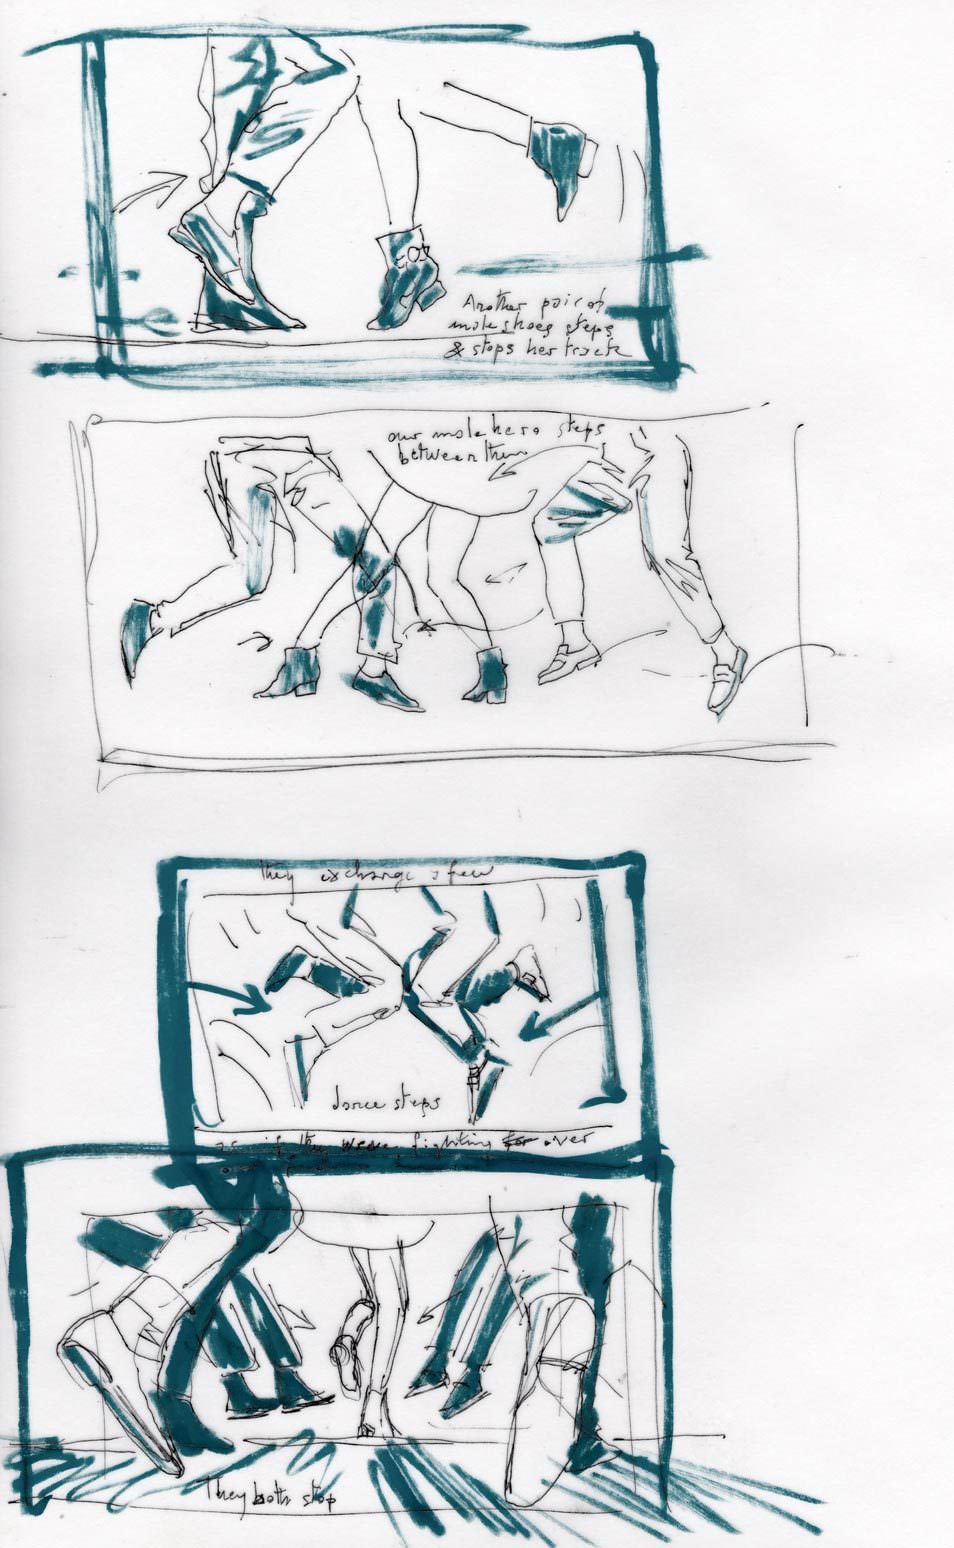 Another pair of
male shoes steps
& stops her track
our male hero steps
between them
They exchange a few
dance steps
as if they were fighting for over
They both stop